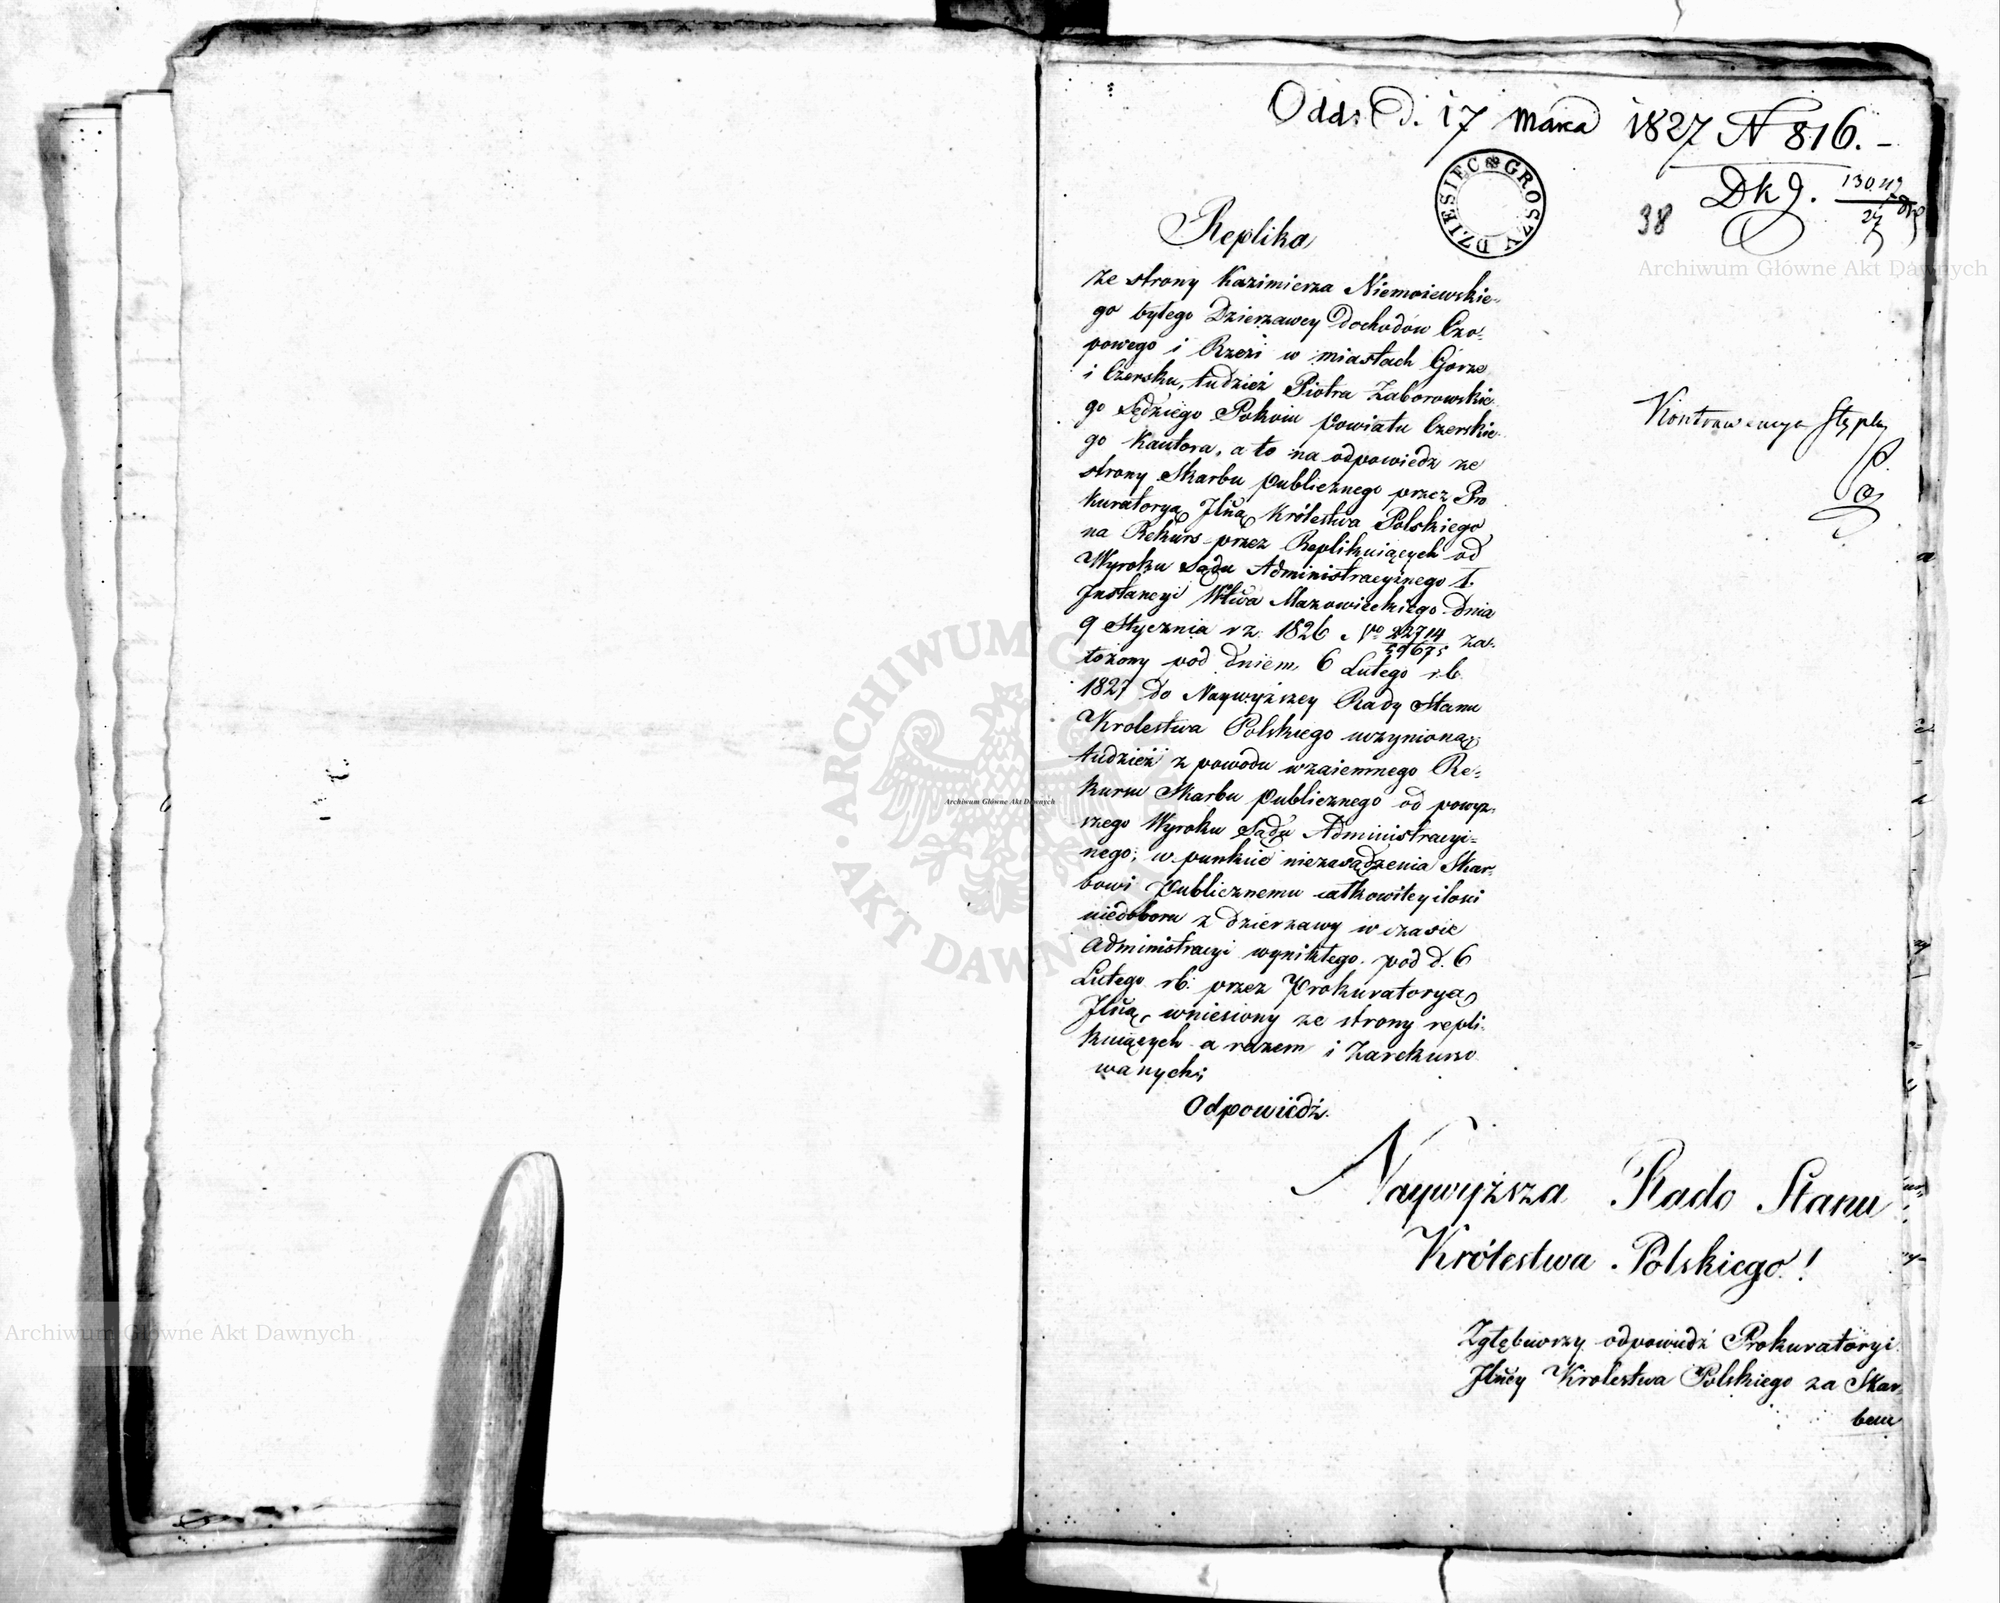 Odds. d. 17 Marca 1827 N 816. -
DZIESIEC GROSZY
Dkg.
38
Replika
ze strony Kazimierza Niemoiewskie-
go byłego Dzierzawcy Dochodów Czo-
powego i Rzezi w miastach Górze
i Czersku, tudzież Piotra Zaborowskie
go Sędziego Pokoiu Powiatu Czerskie-
go Kautora, a to na odpowiedz ze
strony Skarbu publicznego przez Pro
kuratoryą Jlną Królestwa Polskiego
na Rekurs przez Replikuiących od
Wyroku Sądu Administracyinego I.
Instancyi Wtwa Mazowieckiego dnia
9 Stycznia rz. 1826 Nro 22714 za-
łożony pod dniem 6 Lutego r.b.
1827 do Naywyższey Rady Stanu
Krolestwa Polskiego uczynioną;
tudzież z powodu wzaiemnego Re-
kursu Skarbu publicznego od powyż-
szego Wyroku Sądu Administracyi-
nego; w punkcie niezasądzenia Skar-
bowi Publicznemu całkowitey ilosci
niedoboru z dzierzawy w czasie
administracyi wynikłego. pod d. 6
Lutego rb. przez Prokuratoryą
Jlną, wniesiony ze strony repli-
kuiących a razem i Zarekurso
wanych;
Odpowiedź.
Kontrawencya Stępla
Naywyższa Rado Stanu
Królestwa Polskiego!
Zgłębiwszy odpowiedź Prokuratoryi
Jlney Krolestwa Polskiego za Skar-
bem
Archiwum Główne Akt Dawnych
Archiwum Główne Akt Dawnych
Archiwum Główne Akt Dawnych
ARCHIWUM GŁÓWNE AKT DAWNYCH